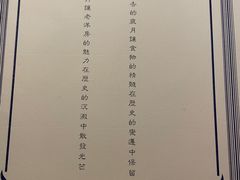 的歲月讓食物的精髓在歷史的變遷中保留
讓老洋房的魅力在歷史的沉澱中散發光芒